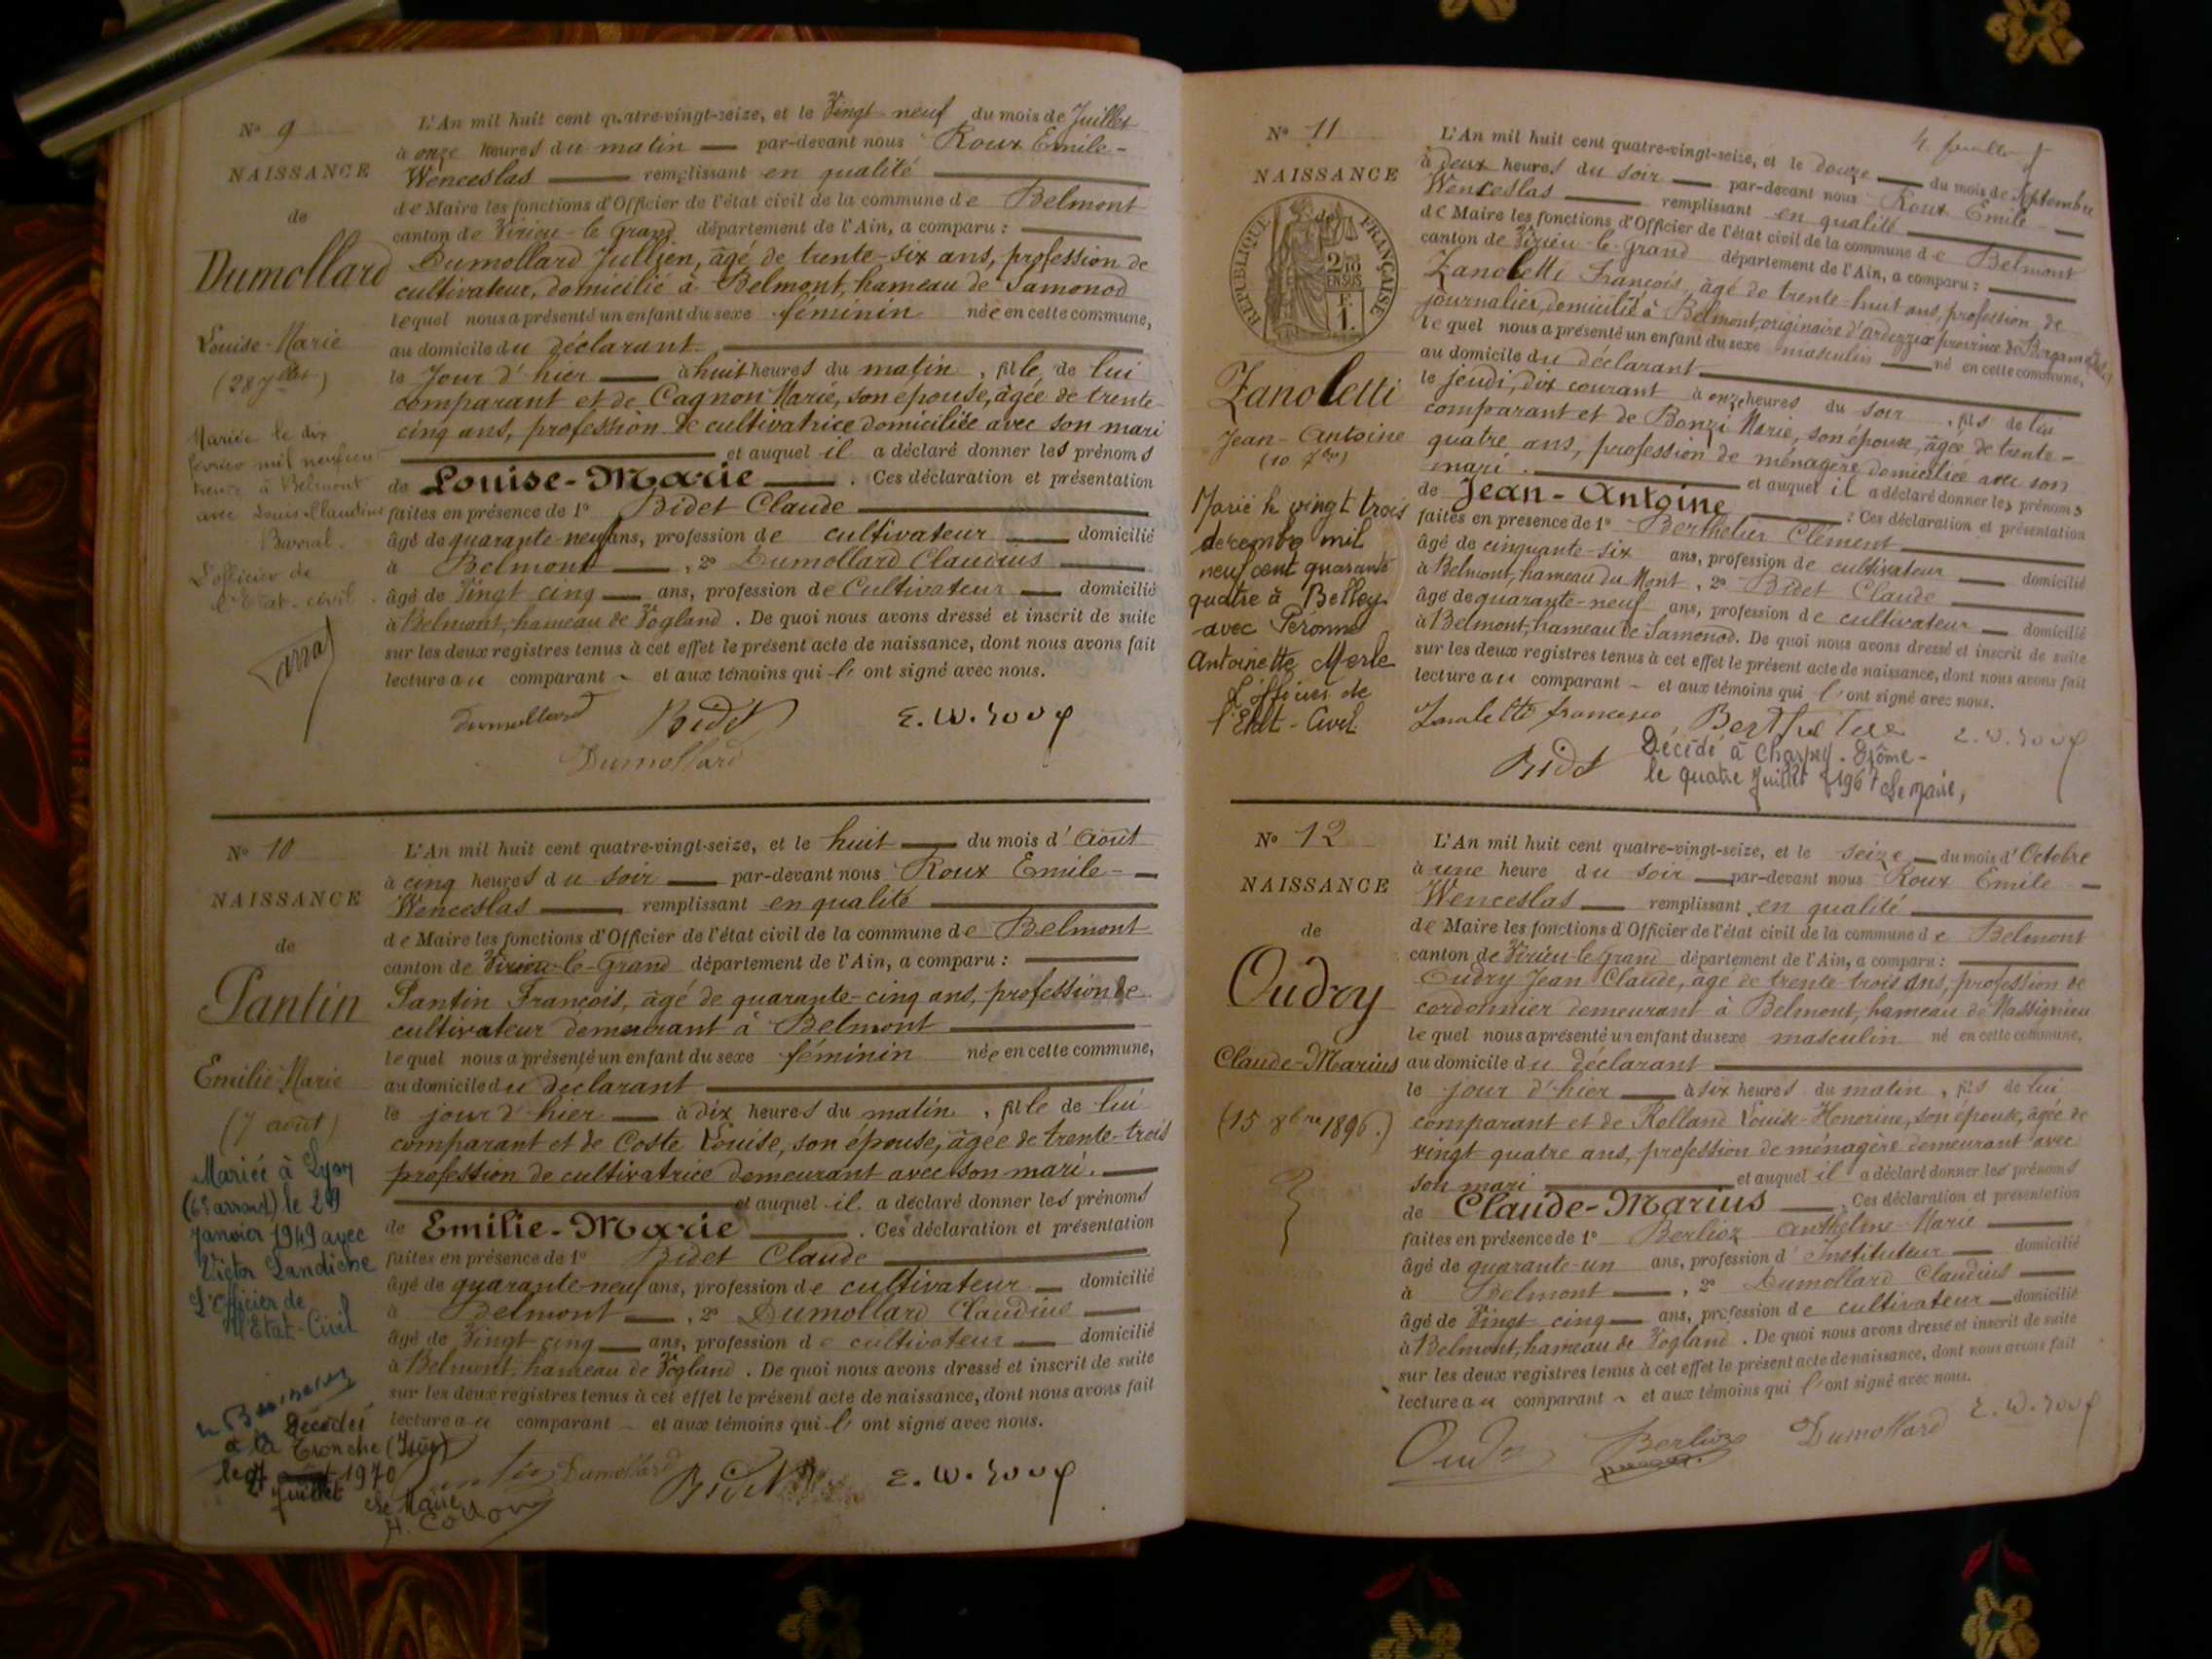 N° 9
NAISSANCE
de
Dumollard
Louise-Marie
(28 Jllet)
Mariée le dix
février mil neuf cent
à Belmont
avec Louis Claudius
Barral.
L'officier de
l'Etat-civil
L'An mil huit cent quatre-vingt-seize, et le Vingt-neuf du mois de Juillet
à onze heures du matin par-devant nous Roux Emile-
Wenceslas remplissant en qualité
de Maire les fonctions d'Officier de l'état civil de la commune de Belmont
canton de Virieu-le-Grand département de l'Ain, a comparu :
Dumollard Jullien, âgé de trente-six ans, profession de
cultivateur, domicilié à Belmont, hameau de Samonod
lequel nous a présenté un enfant du sexe féminin née en cette commune,
au domicile du déclarant
le Jour d'hier à huit heures du matin, fille de lui
comparant et de Cagnon Marie, son épouse, âgée de trente-
cinq ans, profession de cultivatrice domiciliée avec son mari
et auquel il a déclaré donner les prénoms
de Louise-Marie . Ces déclaration et présentation
faites en présence de 1° Bidet Claude
âgé de quarante-neuf ans, profession de cultivateur domicilié
à Belmont , 2° Dumollard Claudius
âgé de Vingt cinq ans, profession de Cultivateur domicilié
à Belmont, hameau de Vogland . De quoi nous avons dressé et inscrit de suite
sur les deux registres tenus à cet effet le présent acte de naissance, dont nous avons fait
lecture au comparant et aux témoins qui l'ont signé avec nous.
Dumollard Bidet E. W. Roux
Dumollard
N° 10
NAISSANCE
de
Pantin
Emilie Marie
(7 août)
Mariée à Lyon
(6e arrond) le 29
Janvier 1949 avec
Victor Landiche
L'Officier de
l'Etat-Civil
Décédée
à la Tronche (Isère)
le 1970
Juillet Le Maire
L'An mil huit cent quatre-vingt-seize, et le huit du mois d'Août
à cinq heures du soir par-devant nous Roux Emile-
Wenceslas remplissant en qualité
de Maire les fonctions d'Officier de l'état civil de la commune de Belmont
canton de Virieu-le-Grand département de l'Ain, a comparu :
Pantin François, âgé de quarante-cinq ans, profession de
cultivateur demeurant à Belmont
lequel nous a présenté un enfant du sexe féminin née en cette commune,
au domicile du déclarant
le jour d'hier à dix heures du matin, fille de lui
comparant et de Coste Louise, son épouse, âgée de trente-trois
profession de cultivatrice demeurant avec son mari.
et auquel il a déclaré donner les prénoms
de Emilie-Marie . Ces déclaration et présentation
faites en présence de 1° Bidet Claude
âgé de quarante-neuf ans, profession de cultivateur domicilié
à Belmont , 2° Dumollard Claudius
âgé de Vingt cinq ans, profession de cultivateur domicilié
à Belmont, hameau de Vogland . De quoi nous avons dressé et inscrit de suite
sur les deux registres tenus à cet effet le présent acte de naissance, dont nous avons fait
lecture au comparant et aux témoins qui l'ont signé avec nous.
Pantin Dumollard Bidet E. W. Roux
N° 11
NAISSANCE
de
RÉPUBLIQUE FRANÇAISE
2/10
EN SUS
F.
1.
Zanoletti
Jean-Antoine
(10 7bre)
Marié le vingt trois
décembre mil
neuf cent quarante
quatre à Belley
avec Péronne
Antoinette Merle
L'officier de
l'Etat-Civil
L'An mil huit cent quatre-vingt-seize, et le douze du mois de Septembre
à deux heures du soir par-devant nous Roux Emile
Wenceslas remplissant en qualité
de Maire les fonctions d'Officier de l'état civil de la commune de Belmont
canton de Virieu-le-Grand département de l'Ain, a comparu :
Zanoletti François, âgé de trente-huit ans, profession de
journalier, domicilié à Belmont, originaire d'Ardezzix province de
lequel nous a présenté un enfant du sexe masculin né en cette commune,
au domicile du déclarant
le jeudi, dix courant à onze heures du soir, fils de lui
comparant et de Bonzi Marie, son épouse, âgée de trente-
quatre ans, profession de ménagère domiciliée avec son
mari. et auquel il a déclaré donner les prénoms
de Jean-Antoine : Ces déclaration et présentation
faites en présence de 1° Berthelier Clément
âgé de cinquante-six ans, profession de cultivateur domicilié
à Belmont, hameau du Mont , 2° Bidet Claude
âgé de quarante-neuf ans, profession de cultivateur domicilié
à Belmont, hameau de Samonod. De quoi nous avons dressé et inscrit de suite
sur les deux registres tenus à cet effet le présent acte de naissance, dont nous avons fait
lecture au comparant et aux témoins qui l'ont signé avec nous.
Zanoletti francesco E. W. Roux
Bidet Décédé à Charpey - Drôme -
le quatre Juillet 1967 Le Maire,
N° 12
NAISSANCE
de
Oudry
Claude-Marius
(15 8bre 1896.)
L'An mil huit cent quatre-vingt-seize, et le seize du mois d'Octobre
à une heure du soir par-devant nous Roux Emile
Wenceslas remplissant en qualité
de Maire les fonctions d'Officier de l'état civil de la commune de Belmont
canton de Virieu-le-Grand département de l'Ain, a comparu :
Oudry Jean Claude, âgé de trente trois ans, profession de
cordonnier demeurant à Belmont, hameau de Massignieu
lequel nous a présenté un enfant du sexe masculin né en cette commune,
au domicile du déclarant
le jour d'hier à six heures du matin, fils de lui
comparant et de Rolland Louise-Honorine, son épouse, âgée de
vingt quatre ans, profession de ménagère demeurant avec
son mari et auquel il a déclaré donner les prénoms
de Claude-Marius . Ces déclaration et présentation
faites en présence de 1° Berlioz Anthelme-Marie
âgé de quarante-un ans, profession d'Instituteur domicilié
à Belmont , 2° Dumollard Claudius
âgé de Vingt cinq ans, profession de cultivateur domicilié
à Belmont, hameau de Vogland . De quoi nous avons dressé et inscrit de suite
sur les deux registres tenus à cet effet le présent acte de naissance, dont nous avons fait
lecture au comparant et aux témoins qui l'ont signé avec nous.
Oudry Berlioz Dumollard E. W. Roux